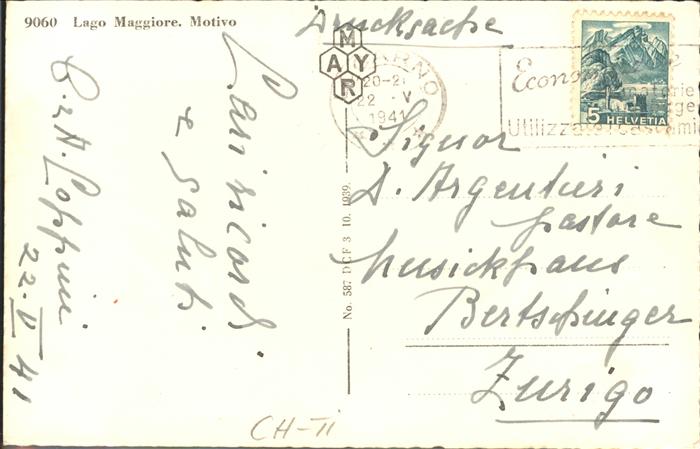 9060 Lago Maggiore. Motivo
Drucksache
MAYR
20-2
22 · V
1941
Econom
materie
Utilizzate i cascami
5 HELVETIA
Cari ricordi
e saluti
22.V 41
No. 587 DCF 3 10. 1939.
Signor
D. Argentieri
pastore
Musickhaus
Bertschinger
Zurigo
CH-TI